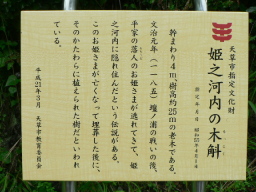 天草市指定文化財
姫之河内の木斛
幹まわり4m、樹高約25mの老木である。
文治元年(一一八五)壇ノ浦の戦いの後、
平家の落人のお姫さまが逃れてきて、姫
之河内に隠れ住んだという伝説がある。
このお姫さまが亡くなって埋葬した後に、
そのかたわらに植えられた樹だといわれ
ている。
平成21年3月 天草市教育委員会